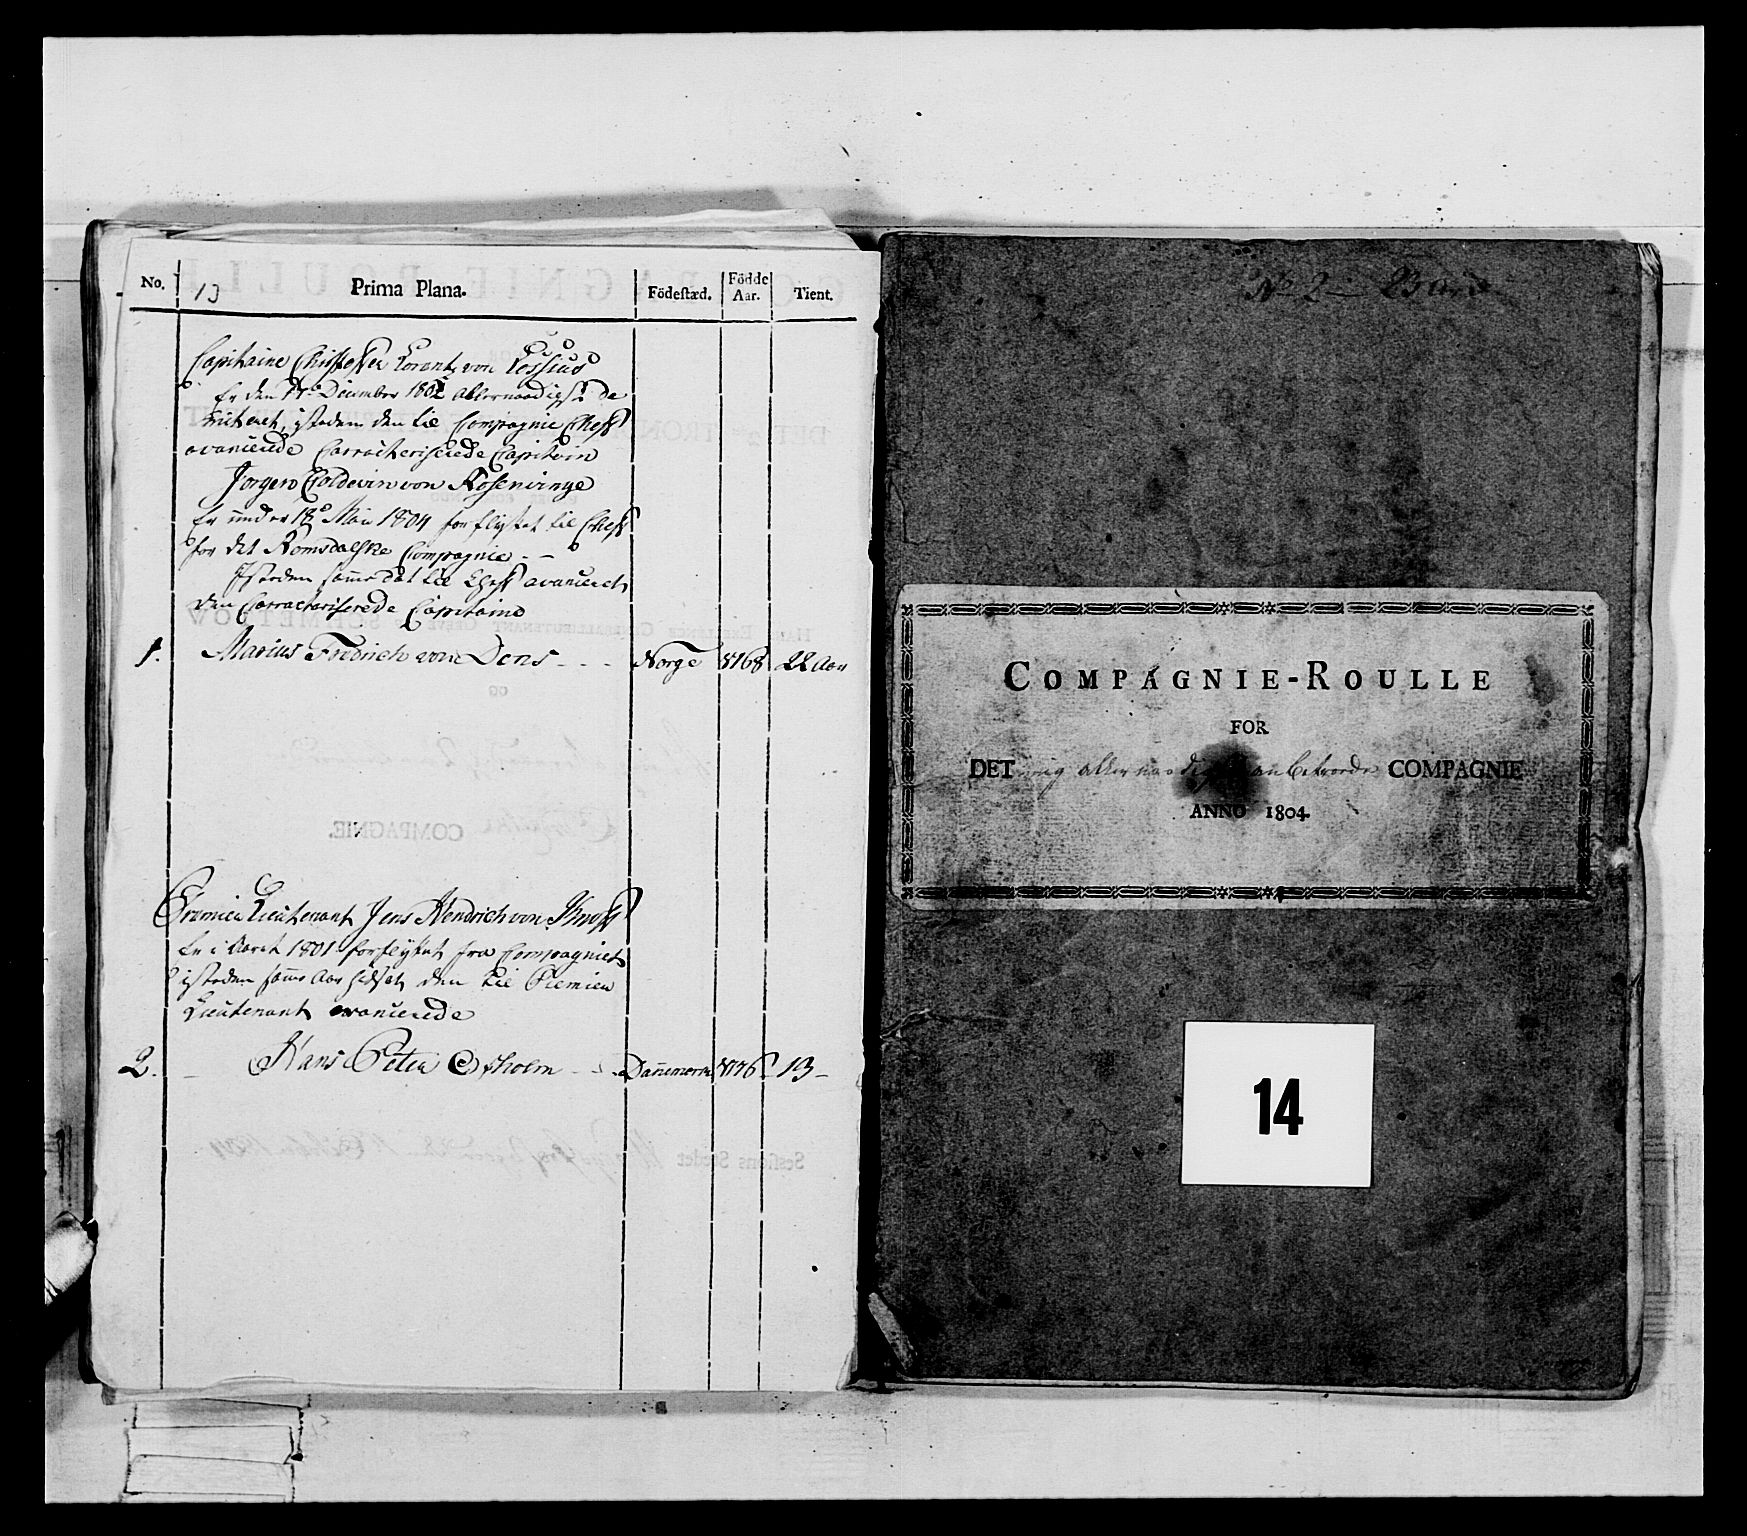 No.
13
Prima Plana.
Födestæd.
Födde Aar.
Tient.
Capitaine Christoffer Lorantz von Lossius
Er den December 1802 allernaadigst de
mitteret, istæden den til Compagnie Cheff
avancerede Carracteriserede Capitain
Jørgen Coldevin von Rosenvinge
Er under 18de Maii 1804 forflyttet til Cheff
for det Romsdalske Compagnie - -
Isteden samme dat til Cheff avanceret
den Carracteriserede Capitaine
1. Marius Fredrich von Dens - - - Norge 1768 22 Aar
Premier Lieutenant Jens Hendrich von Knoff
Er i Aaret 1801 forflyttet fra Compagniet
isteden samme Aar hidsat den til Premier
Lieutenant avancerede
2. Hans Peter Østholm - - - Dannemark 1776 13 -
No 2 - Bund
COMPAGNIE-ROULLE
FOR
DET mig allernaadigst anbetroede COMPAGNIE
ANNO 1804.
14